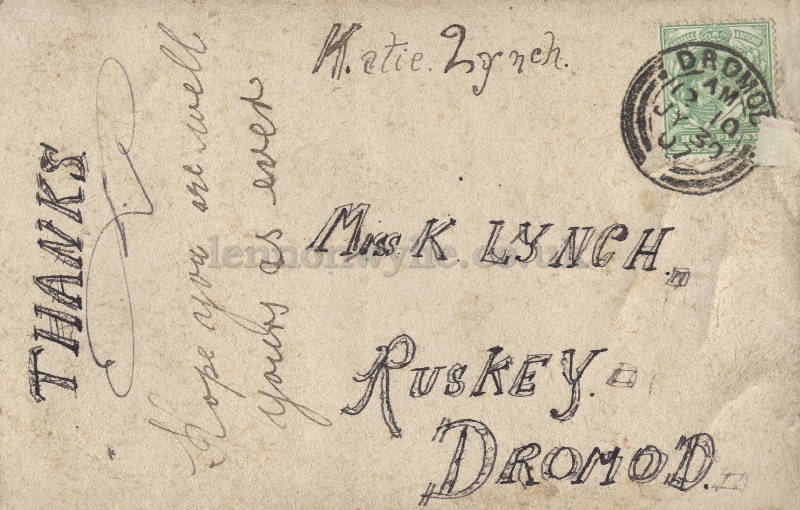 Katie. Lynch.
Miss. K LYNCH.
RUSKEY.
DROMOD.
THANKS
Hope you are well
yours as ever
DROMOD
AM
10
JY 30
07
lennonwylie.co.uk